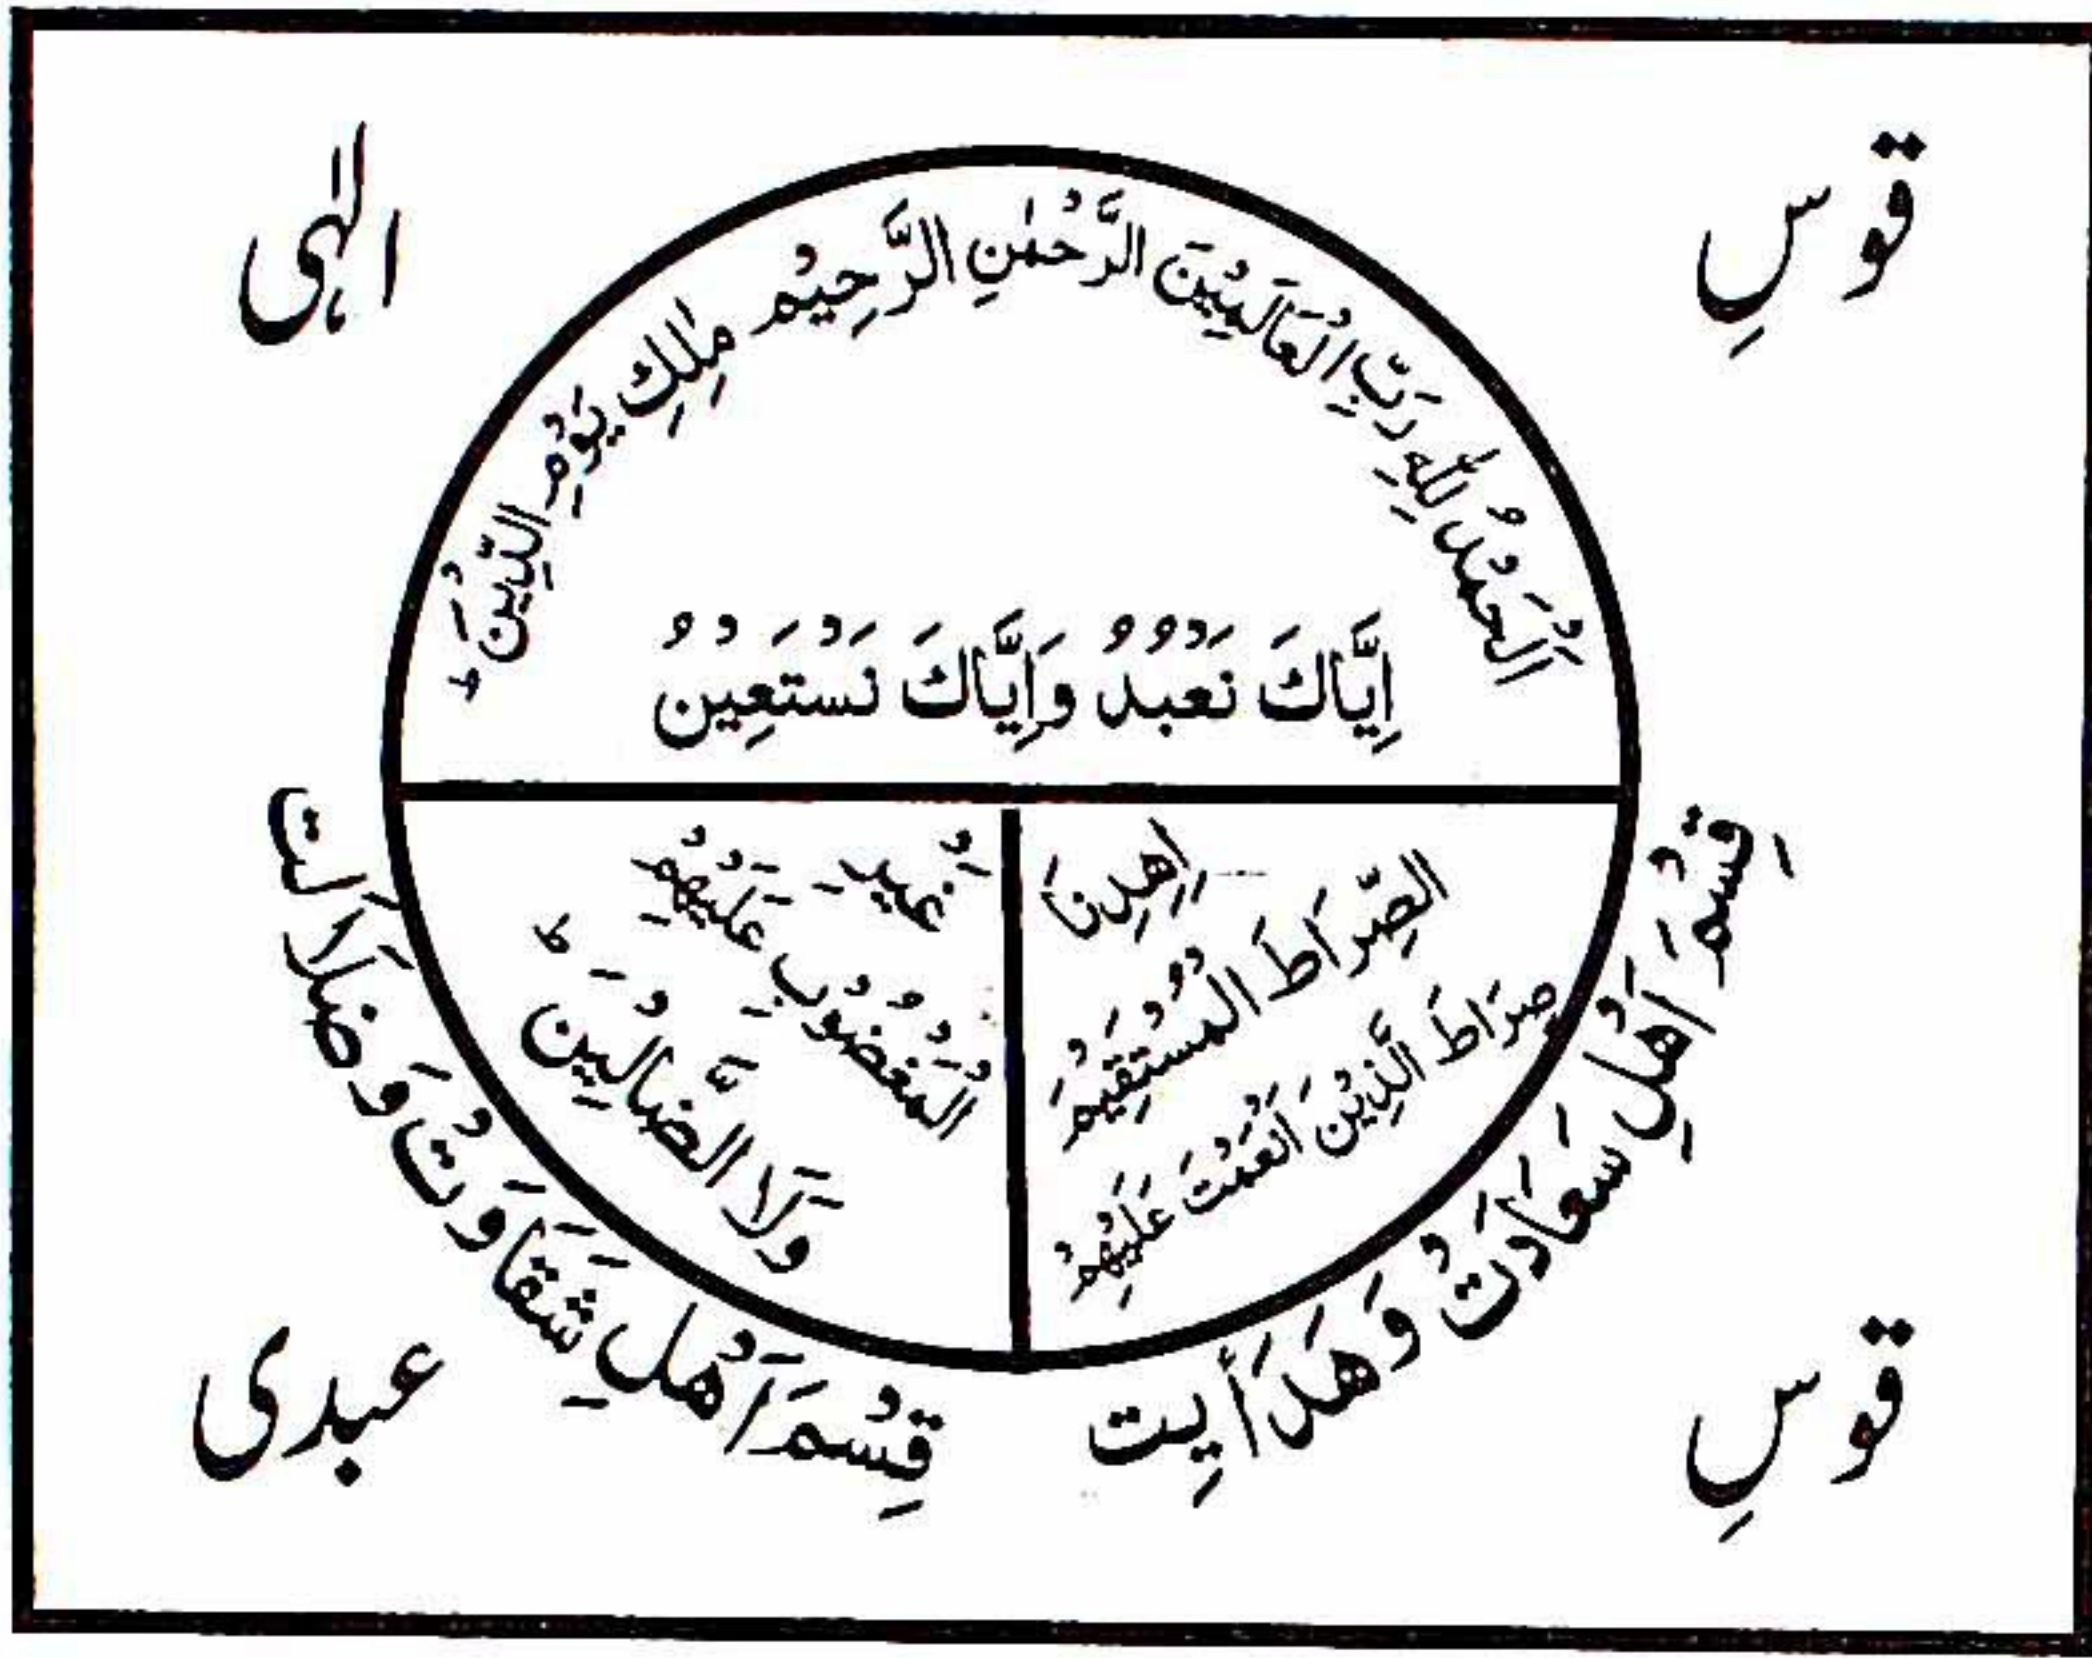 قوسِ الٰہی
اَلْحَمْدُ لِلّٰهِ رَبِّ الْعَالَمِيْنَ الرَّحْمٰنِ الرَّحِيْمِ مٰلِكِ يَوْمِ الدِّيْنَ ط
اِيَّاكَ نَعْبُدُ وَاِيَّاكَ نَسْتَعِيْنُ
اِهْدِنَا
الصِّرَاطَ الْمُسْتَقِيْمَ
صِرَاطَ الَّذِيْنَ اَنْعَمْتَ عَلَيْهِمْ
غَيْرِ
الْمَغْضُوْبِ عَلَيْهِمْ
وَلَا الضَّالِّيْنَ ط
قِسْمَ اَهْلِ سَعَادَتْ وَهَدَأيِت
قِسْمَ اَهْلِ شَقَاوَتْ وَضَلَالَت
قوسِ عبدی